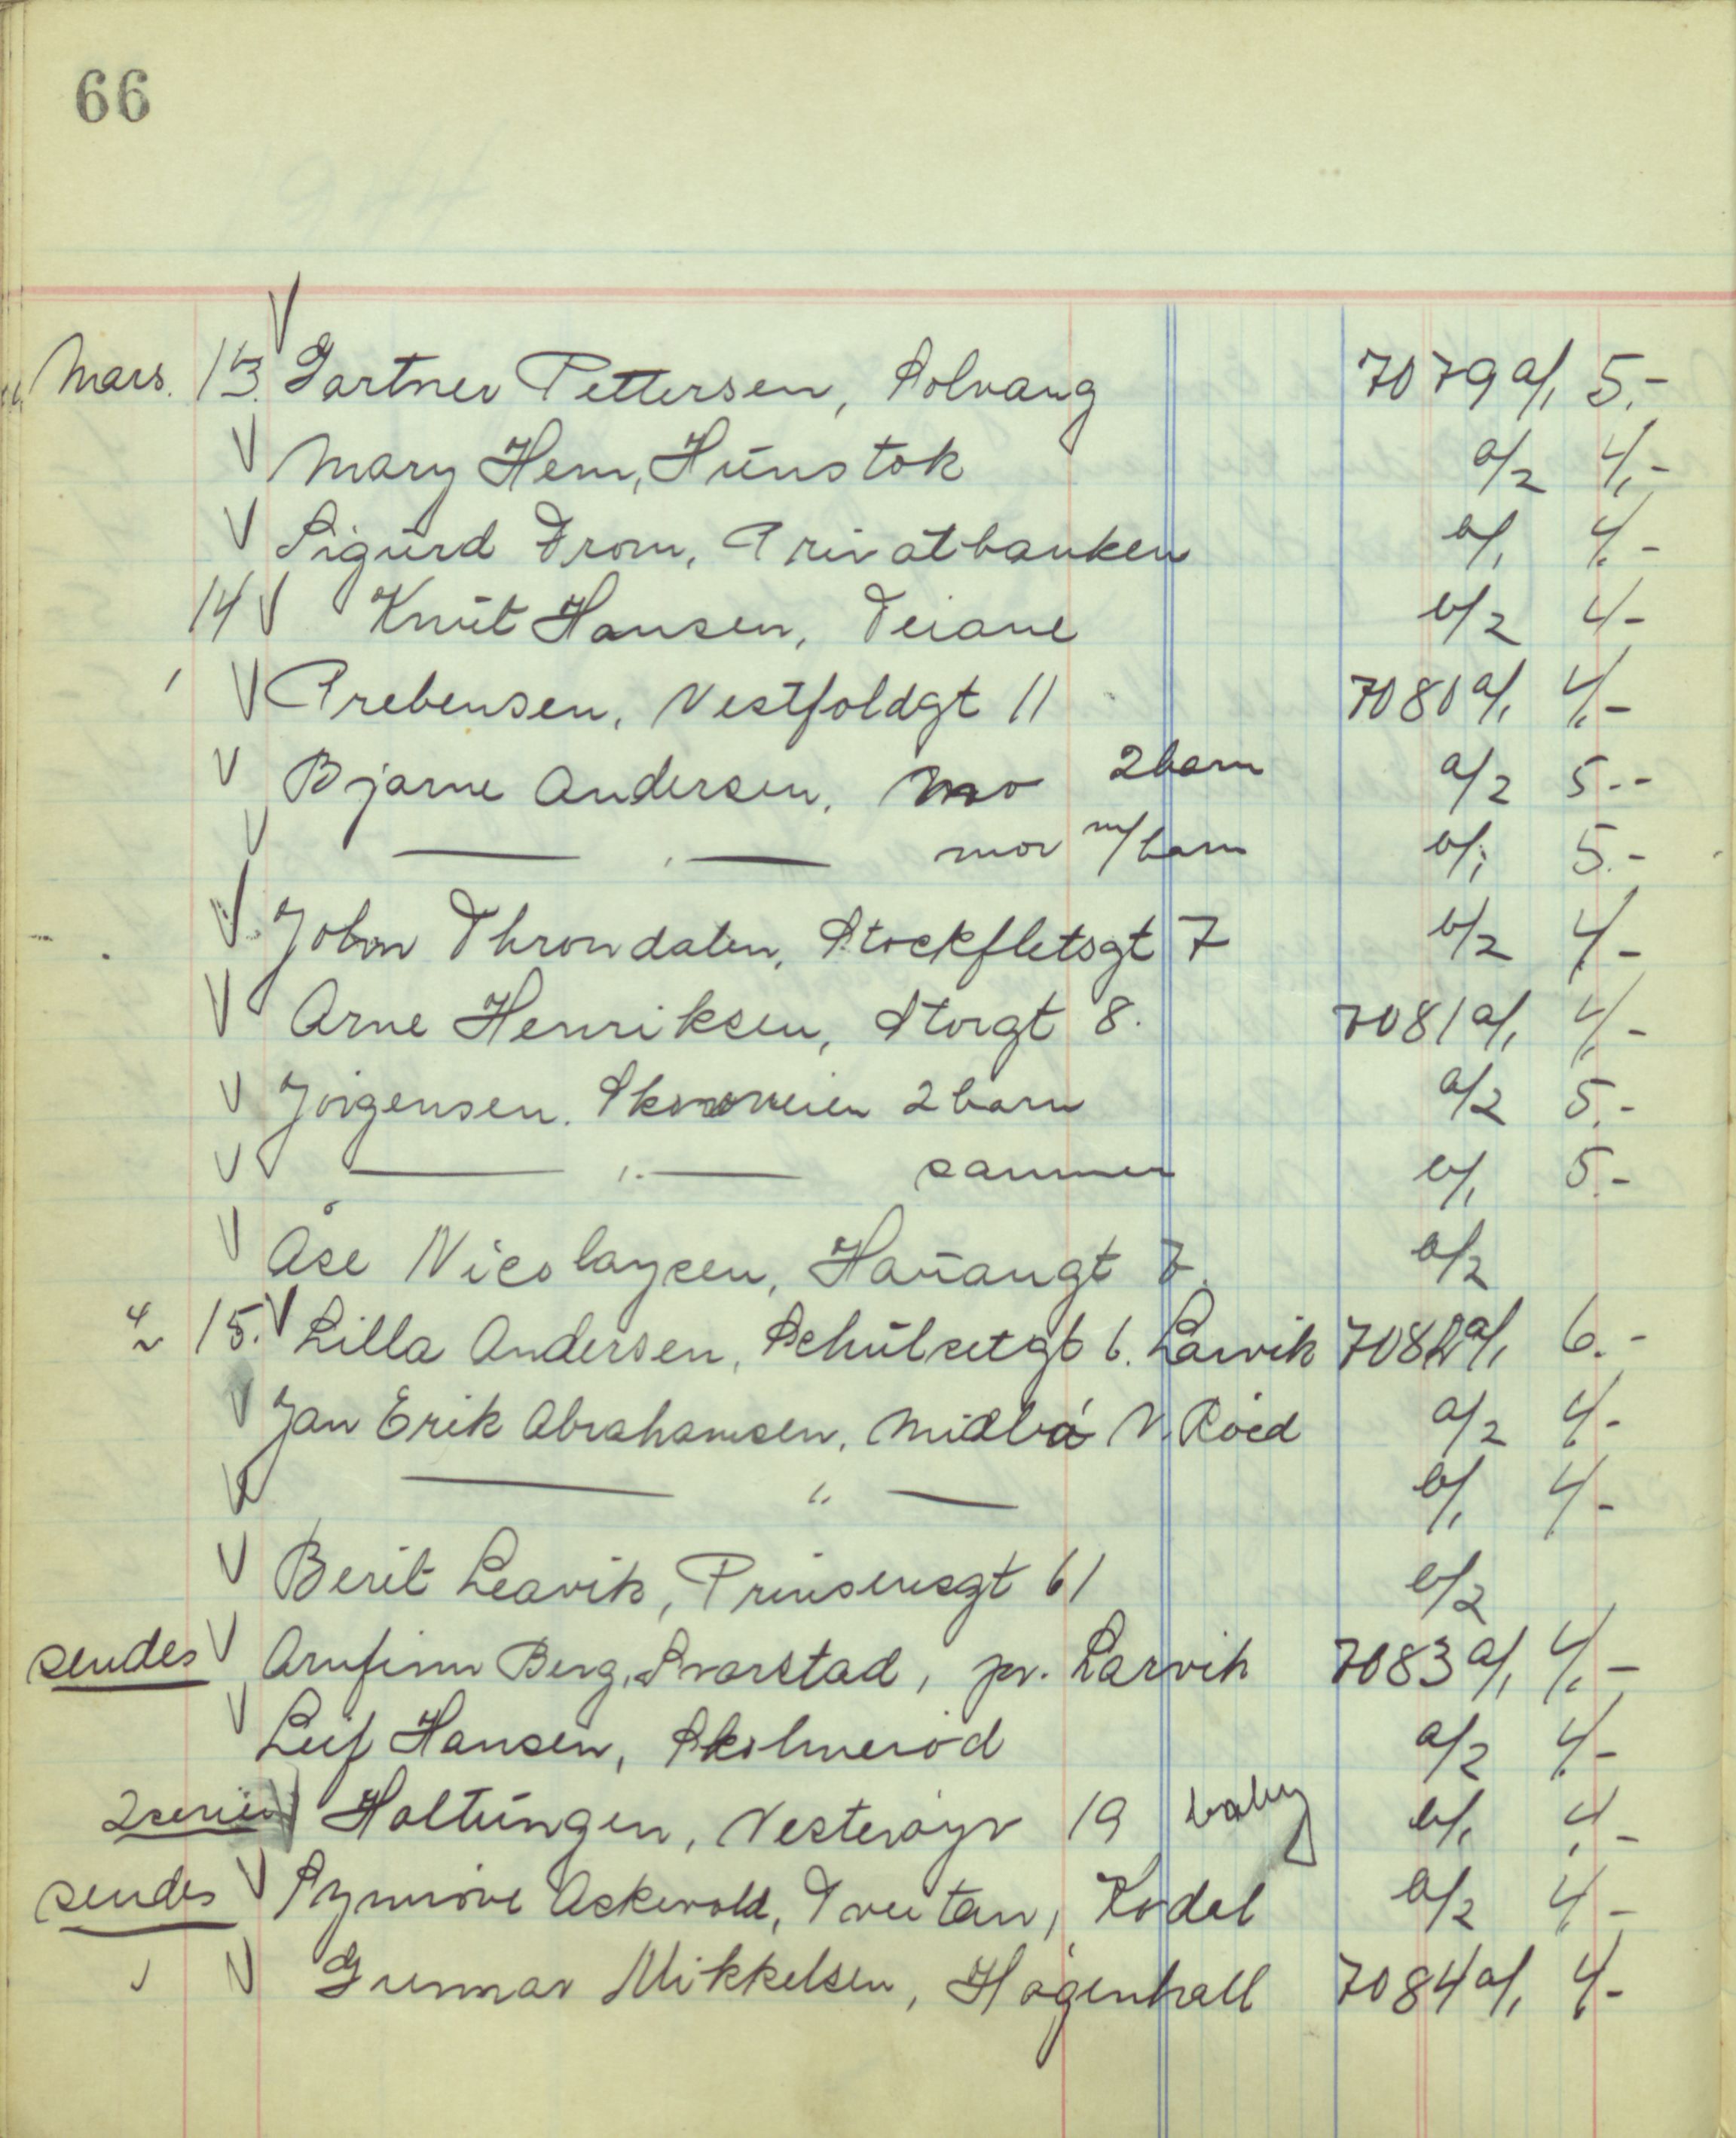 66
1944
Mars. 13. Gartner Pettersen, Solvang 7079 a/1 5.-
Mary Hem, Hunstok a/2 4,-
Sigurd From, Privatbanken b/1 4.-
14 Knut Hansen, Teiane b/2 4-
Prebensen, Vestfoldgt 11 7080 a/1 4.-
Bjarne Andersen, Mo 2 barn a/2 5.-
— " — mor m/barn b/1 5.-
John Throndalen, Stockfletsgt 7 b/2 4.-
Arne Henriksen, Storgt 8. 7081 a/1 4.-
Jörgensen. 2 barn a/2 5.-
— " — sammen b/1 5.-
Åse Nicolaysen, Hauangt 7. b/2
15. Lilla Andersen, Schulzetgt 6. Larvik 7082 a/1 6.-
Jan Erik Abrahamsen, Midlbö N. Röed a/2 4-
— " — b/1 4-
Berit Leavik, Prinsensgt 61 b/2
sendes Arnfinn Berg, Svarstad, pr. Larvik 7083 a/1 4.-
Leif Hansen, Skolmeröd a/2 4.-
2 serier Holtungen, Vesteröyv 19 baby b/1 4.-
sendes Synnöve Askevold, Tveitan, Kodal b/2 4-
Gunnar Mikkelsen, Hågenhall 7084 a/1 4.-